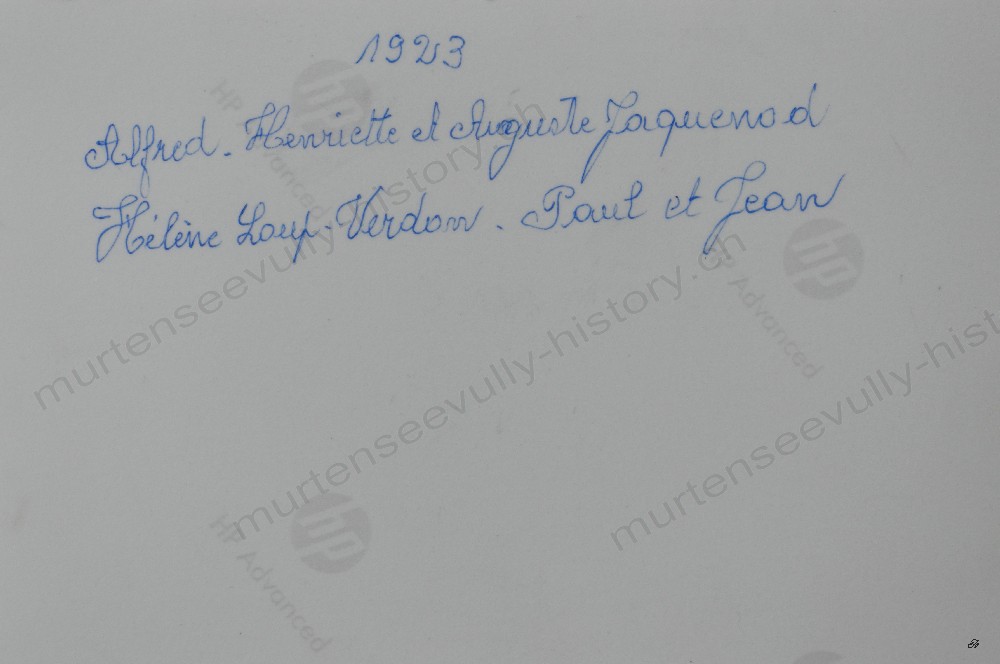 1923
Alfred. Henriette et Auguste Jaquenod
Hélène Loup-Verdon. Paul et Jean
HP Advanced
HP Advanced
HP Advanced
murtenseevully-history.ch
murtenseevully-history.ch
murtenseevully-hist